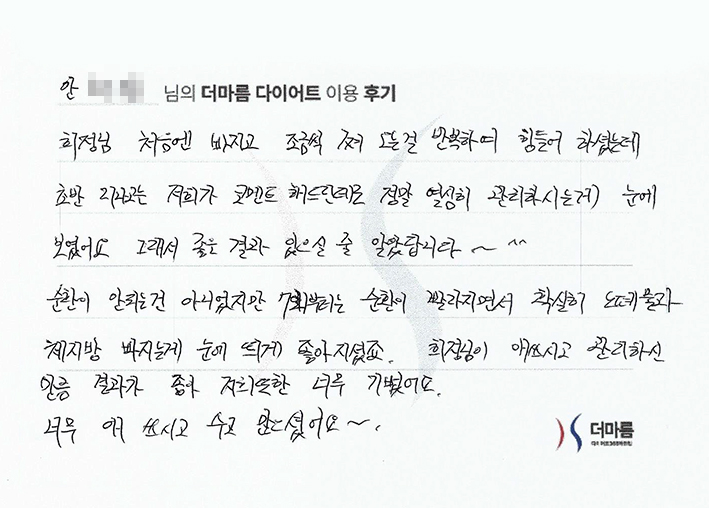 안 님의 더마름 다이어트 이용 후기
희정님 처음엔 빠지고 조금씩 쪄서 오는걸 반복하여 힘들어 하셨는데
초반 지나고는 저희가 코멘트 해드린대로 정말 열심히 관리하시는게 눈에
보였어요 그래서 좋은 결과 있으실 줄 알았답니다 ~ ^^
순환이 안되는건 아니었지만 7회부터는 순환이 빨라지면서 확실히 노폐물과
체지방 빠지는게 눈에 띄게 좋아지셨죠. 희정님이 애쓰시고 관리하신
만큼 결과가 좋아 저희또한 너무 기뻤어요.
너무 애 쓰시고 수고 많으셨어요~.
더마름